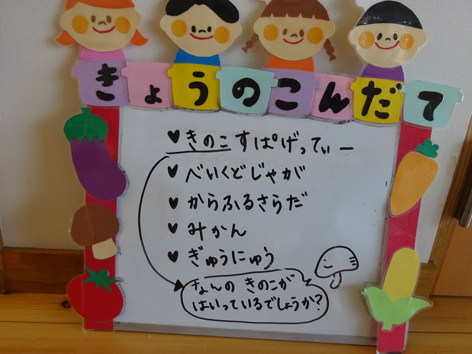 きょうのこんだて
♥ きのこすぱげってぃー
♥ べいくどじゃが
♥ からふるさらだ
♥ みかん
♥ ぎゅうにゅう
なんの きのこが
はいっているでしょうか?